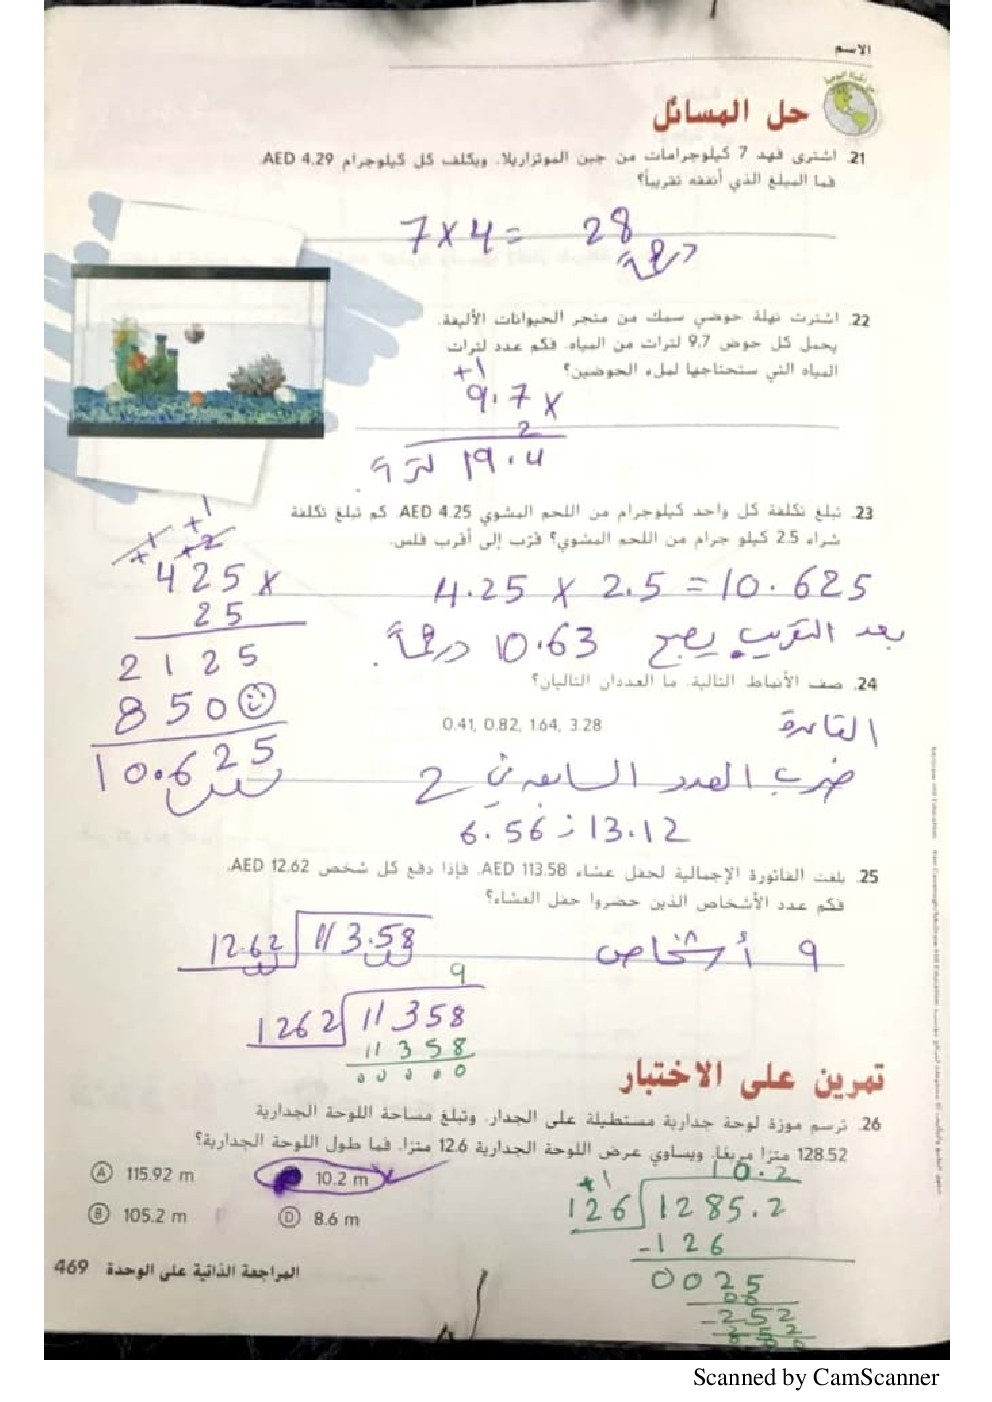 الاسم
حل المسائل
21. اشترى فهد 7 كيلوجرامات من جبن الموتزاريلا. ويكلف كل كيلوجرام AED 4.29.
فما المبلغ الذي أنفقه تقريباً؟
7 x 4 = 28
درهمًا
22. اشترت نهلة حوضي سمك من متجر الحيوانات الأليفة.
يحمل كل حوض 9.7 لترات من المياه. فكم عدد لترات
المياه التي ستحتاجها لملء الحوضين؟
+1
9.7 x
2
19.4 لترًا.
23. تبلغ تكلفة كل واحد كيلوجرام من اللحم المشوي AED 4.25. كم تبلغ تكلفة
شراء 2.5 كيلو جرام من اللحم المشوي؟ قرّب إلى أقرب فلس.
+1
+1 +2
425 x
25
2125
850
10.625
4.25 x 2.5 = 10.625
بعد التقريب يصبح 10.63 درهمًا.
24. صف الأنماط التالية. ما العددان التاليان؟
0.41, 0.82, 1.64, 3.28
القاعدة
ضرب العدد السابق في 2
6.56 ; 13.12
25. بلغت الفاتورة الإجمالية لحفل عشاء AED 113.58. فإذا دفع كل شخص AED 12.62.
فكم عدد الأشخاص الذين حضروا حفل العشاء؟
9 أشخاص
12.62 113.58
9
1262 11358
11358
00000
تمرين على الاختبار
26. ترسم موزة لوحة جدارية مستطيلة على الجدار. وتبلغ مساحة اللوحة الجدارية
128.52 مترًا مربعًا. ويساوي عرض اللوحة الجدارية 12.6 مترًا. فما طول اللوحة الجدارية؟
A 115.92 m
10.2 m
B 105.2 m
D 8.6 m
10.2
+1
126 1285.2
-126
0025
00
-252
252
469 المراجعة الذاتية على الوحدة
Scanned by CamScanner